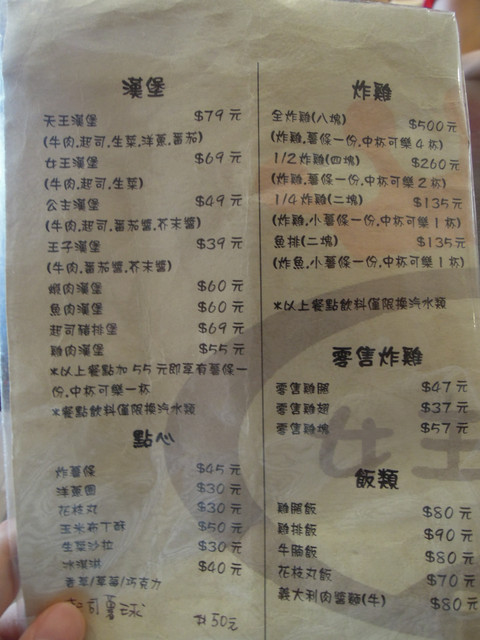 漢堡
天王漢堡 $79元
(牛肉.起司.生菜.洋蔥.番茄)
女王漢堡 $69元
(牛肉.起司.生菜)
公主漢堡 $49元
(牛肉.起司.番茄醬.芥末醬)
王子漢堡 $39元
(牛肉.番茄醬.芥末醬)
蝦肉漢堡 $60元
魚肉漢堡 $60元
起司豬排堡 $69元
雞肉漢堡 $55元
*以上餐點加55元即享有薯條一
份.中杯可樂一杯
*餐點飲料僅限換汽水類
點心
炸薯條 $45元
洋蔥圈 $30元
花枝丸 $30元
玉米布丁酥 $50元
生菜沙拉 $30元
冰淇淋 $40元
香草/草莓/巧克力
起司薯球 $50元
炸雞
全炸雞(八塊) $500元
(炸雞.薯條一份.中杯可樂4杯)
1/2炸雞(四塊) $260元
(炸雞.薯條一份.中杯可樂2杯)
1/4炸雞(二塊) $135元
(炸雞.小薯條一份.中杯可樂1杯)
魚排(二塊) $135元
(炸魚.小薯條一份.中杯可樂1杯)
*以上餐點飲料僅限換汽水類
零售炸雞
零售雞腿 $47元
零售雞翅 $37元
零售雞塊 $57元
女王
飯類
雞腿飯 $80元
雞排飯 $90元
牛腩飯 $80元
花枝丸飯 $70元
義大利肉醬麵(牛) $80元